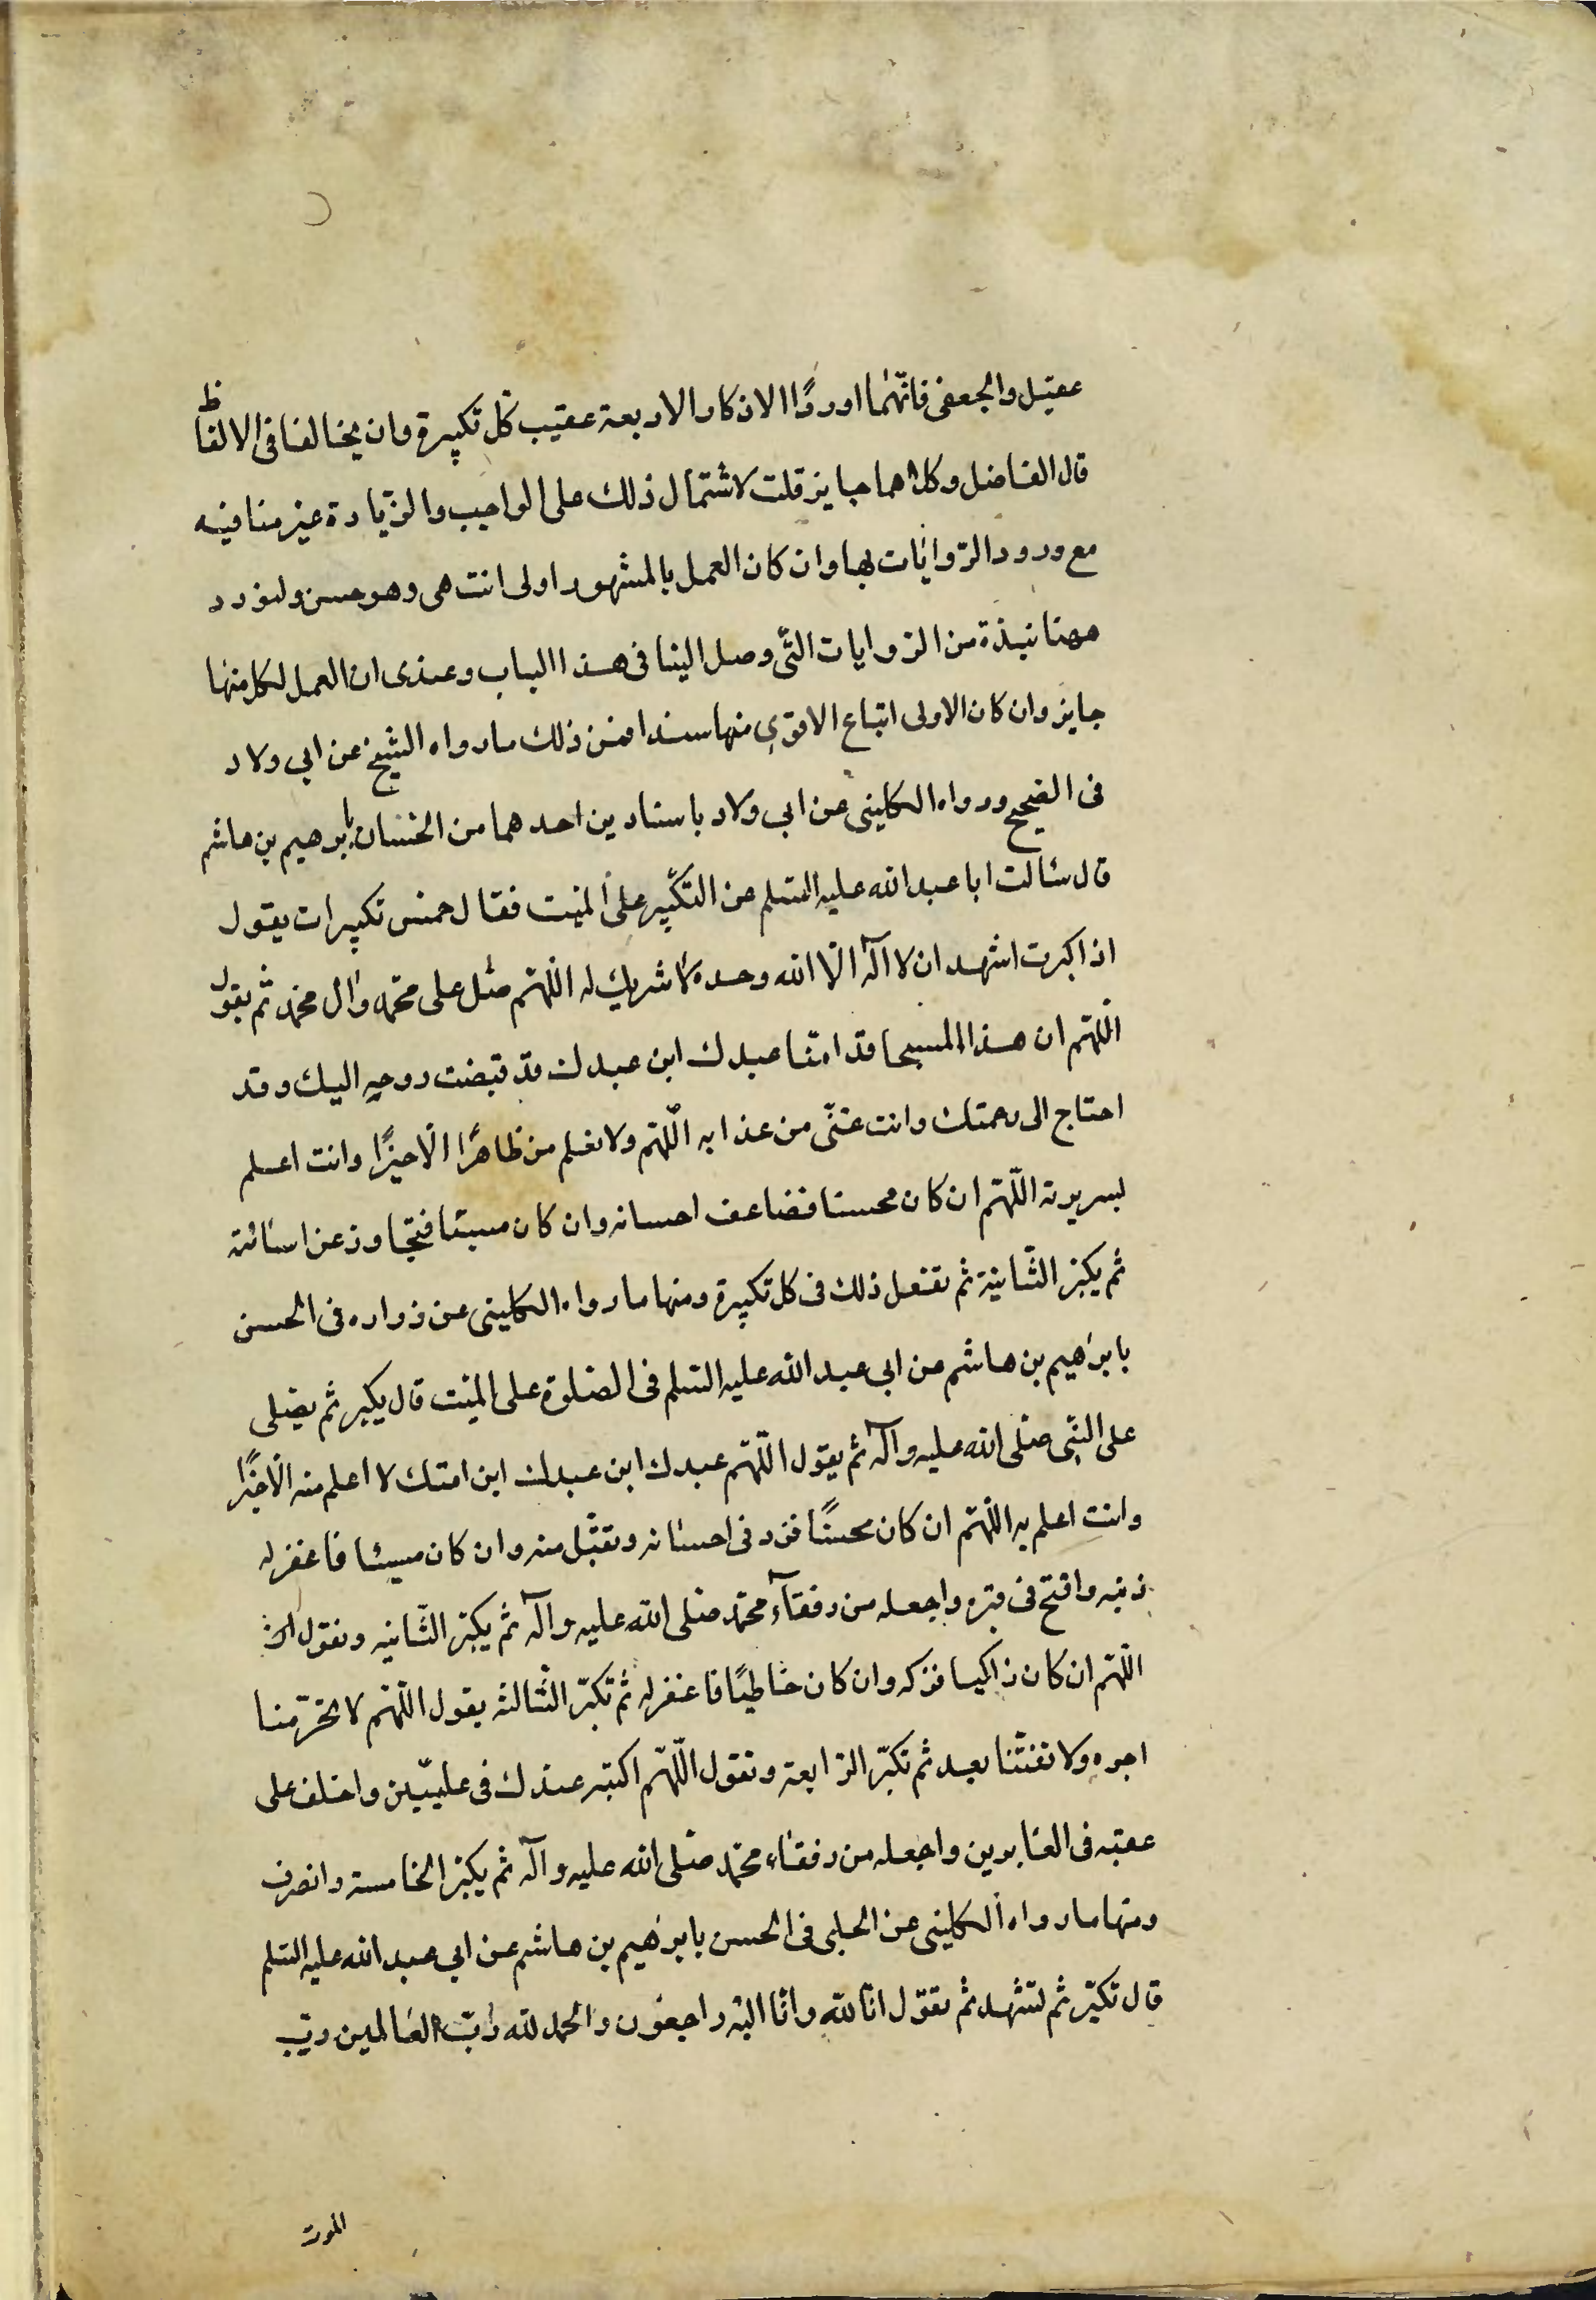 عقيل والجعفى فانّهما اوردا الاذكار الاربعة عقيب كل تكبيرة وان يخالفا فى الالفاظ
قال الفاضل وكلاهما جايز قلت لاشتمال ذلك على الواجب والزّيادة غير منافيه
مع ورود الرّوايات بها وان كان العمل بالمشهور اولى انتهى وهو حسن ولنورد
ههنا نبذة من الروايات التّى وصل الينا فى هذا الباب وعندى ان العمل لكل منها
جايز وان كان الاولى اتباع الاقوى منها سندا فمن ذلك ما رواه الشيخ عن ابى ولاد
فى الصحيح ورواه الكلينى عن ابى ولاد باسنادين احدهما من الحسان بابرهيم بن هاشم
قال سئالت ابا عبد الله عليه السّلم عن التكبير على الميت فقال خمس تكبيرات يقول
اذا كبرت اشهد ان لا اله الّا الله وحده لا شريك له اللّهم صل على محمّد وال محمّد ثم يقول
اللّهم ان هذا المسجا قدامنا عبدك ابن عبدك قد قبضت روحه اليك وقد
احتاج الى رحمتك وانت غنّى من عذابه اللّهم ولا نعلم من ظاهرا الّا خيرًا وانت اعلم
بسريرته اللّهم ان كان محسنا فضاعف احسانه وان كان مسيئا فتجاوز عن اسائته
ثم يكبر الثّانية ثم تفعل ذلك فى كل تكبيرة ومنها ما رواه الكلينى عن زراره فى الحسن
بابرهيم بن هاشم عن ابى عبد الله عليه السّلم فى الصّلوة على الميّت قال يكبر ثم يصلى
على النّبى صلى الله عليه وآله ثم يقول اللّهم عبدك ابن عبدك ابن امتك لا اعلم منه الّا خيرًا
وانت اعلم به اللّهم ان كان محسنًا فزد فى احسانه وتقبّل منه وان كان مسيئا فاغفر له
ذنبه وافتح فى قبره واجعله من رفقاء محمّد صلى الله عليه وآله ثم يكبر الثّانيه وتقول
اللّهم ان كان زاكيا فزكه وان كان خاطئًا فاغفر له ثم تكبّر الثّالثه يقول اللّهم لا تحرّمنا
اجره ولا تفتنّنا بعد ثم تكبّر الرّابعة وتقول اللّهم اكتبه عندك فى علييّن واخلف على
عقبه فى الغابرين واجعله من رفقاء محمّد صلى الله عليه وآله ثم يكبر الخامسة وانصرف
ومنها ما رواه الكلينى عن الحلبى فى الحسن بابرهيم بن هاشم عن ابى عبد الله عليه السّلم
قال تكبّر ثم تشهد ثم تقول انّا لله وانّا اليه راجعون والحمد لله ربّ العالمين ربّ
الموت